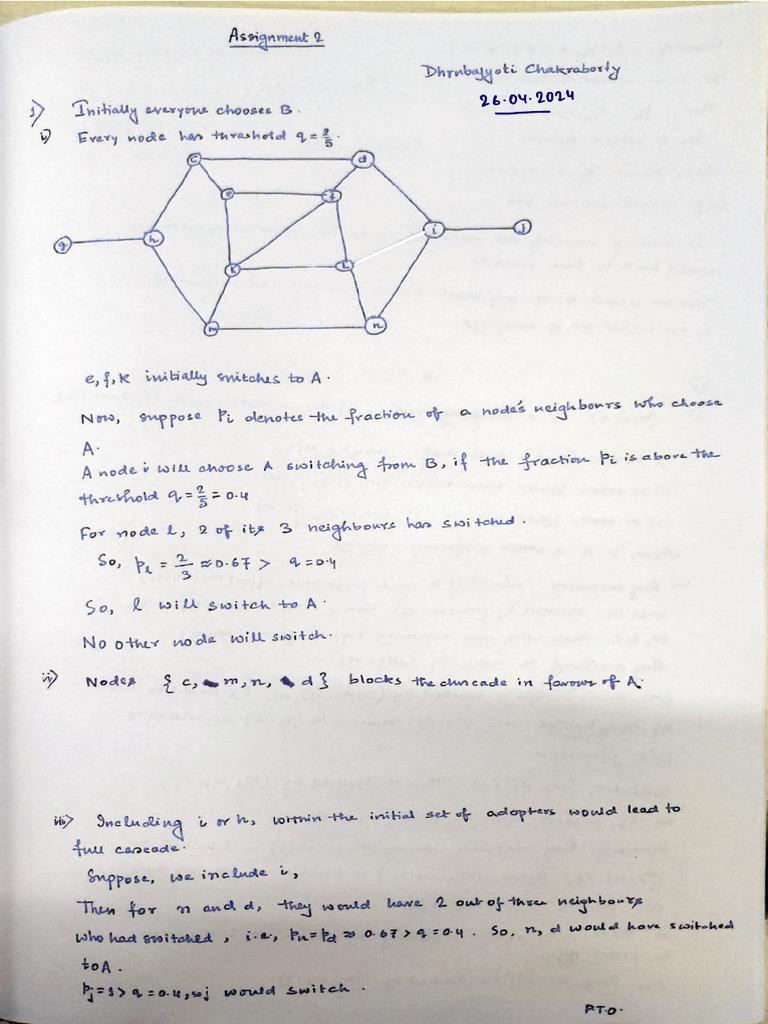 Assignment 2
Dhrubajyoti Chakraborty
26.04.2024
1) Initially everyone chooses B.
i) Every node has threshold q = 2/5.
c
d
e
f
g
h
i
j
k
l
m
n
e, f, k initially switches to A.
Now, suppose Pi denotes the fraction of a node's neighbours who choose
A.
A node i will choose A switching from B, if the fraction Pi is above the
threshold q = 2/5 = 0.4
For node l, 2 of its 3 neighbours has switched.
So, Pl = 2/3 ≈ 0.67 > q = 0.4
So, l will switch to A.
No other node will switch.
ii) Nodes { c, m, n, d } blocks the cascade in favour of A.
iii) Including i or h, within the initial set of adopters would lead to
full cascade.
Suppose, we include i,
Then for n and d, they would have 2 out of three neighbours
who had switched, i.e., Pn = Pd ≈ 0.67 > q = 0.4. So, n, d would have switched
to A.
Pj = 1 > q = 0.4, so j would switch.
P.T.O.